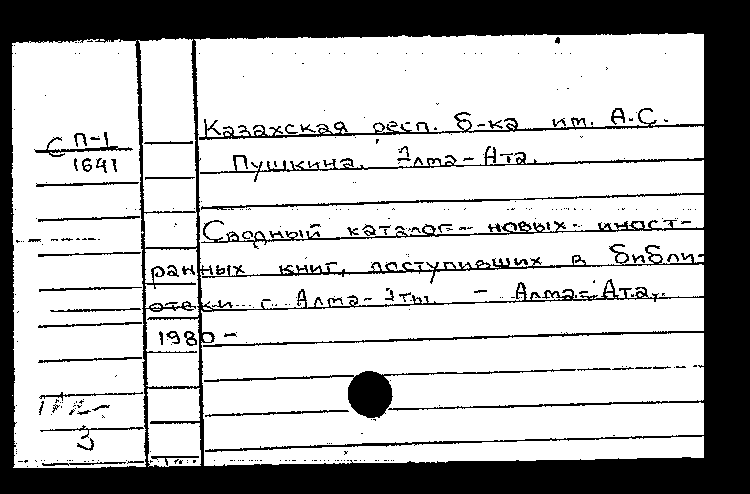 Казахская респ. б-ка им. А.С.
Пушкина. Алма-Ата.
С П-1
1641
Сводный каталог новых иност-
ранных книг, поступивших в библи-
отеки г. Алма-Аты. - Алма-Ата,
1980-
3